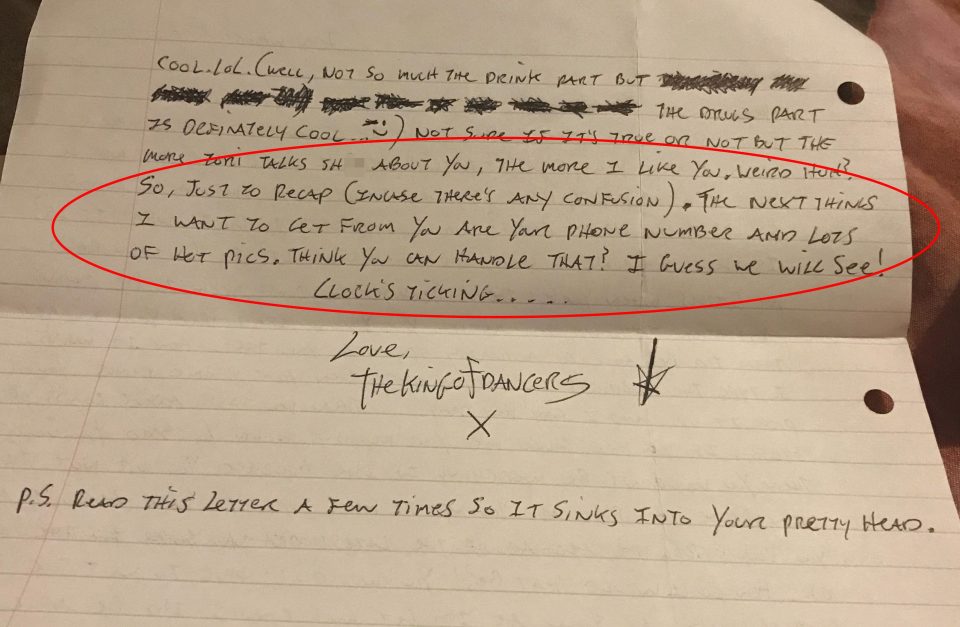 COOL.LOL.(WELL, NOT SO MUCH THE DRINK PART BUT
THE DRUGS PART
IS DEFINATELY COOL...) NOT SURE IF IT'S TRUE OR NOT BUT THE
MORE TORI TALKS SH ABOUT YOU, THE MORE I LIKE YOU. WEIRD HUH?
SO, JUST TO RECAP (INCASE THERE'S ANY CONFUSION). THE NEXT THINGS
I WANT TO GET FROM YOU ARE YOUR PHONE NUMBER AND LOTS
OF HOT PICS. THINK YOU CAN HANDLE THAT? I GUESS WE WILL SEE!
CLOCK'S TICKING.....
LOVE,
THEKINGOFDANCERS
X
P.S. READ THIS LETTER A FEW TIMES SO IT SINKS INTO YOUR PRETTY HEAD.